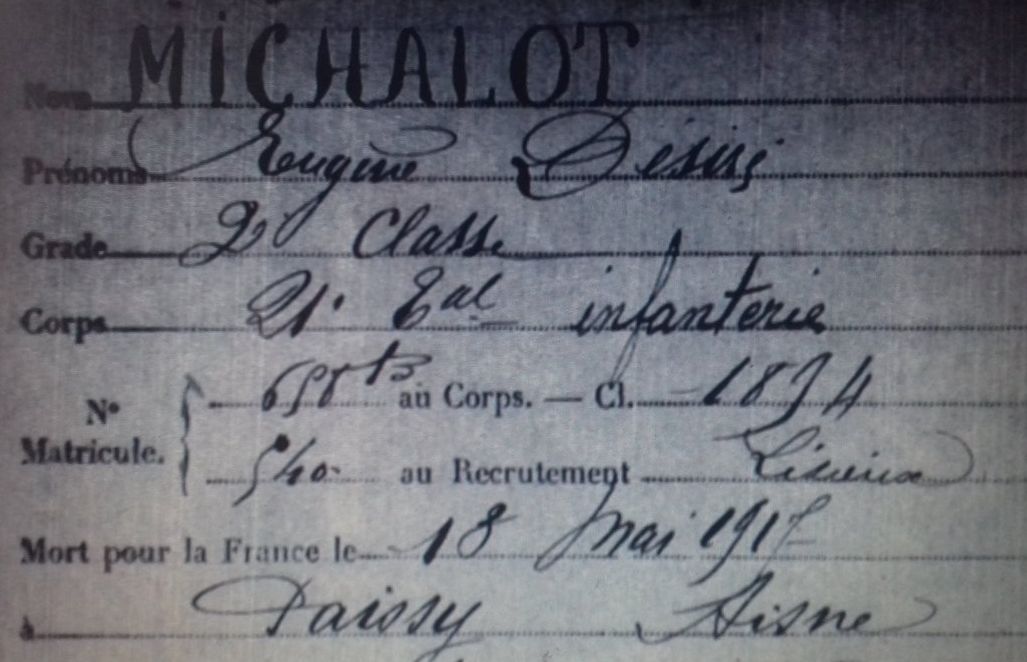 Nom MICHALOT
Prénoms Eugène Désiré
Grade 2e Classe
Corps 21e Bal infanterie
au Corps. — Cl. 1894
N°
Matricule.
540 au Recrutement Lisieux
Mort pour la France le 18 Mai 191
à Paissy Aisne